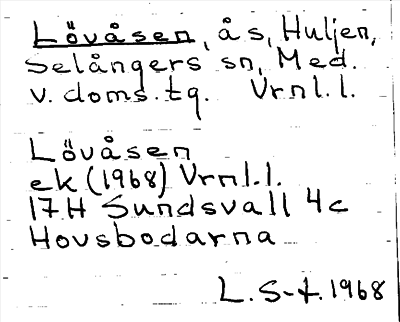 Lövåsen, ås, Huljen,
Selångers sn, Med.
v. doms.tg. Vrnl.l.
Lövåsen
ek (1968) Vrnl.l.
17H Sundsvall 4c
Hovsbodarna
L. S-t. 1968